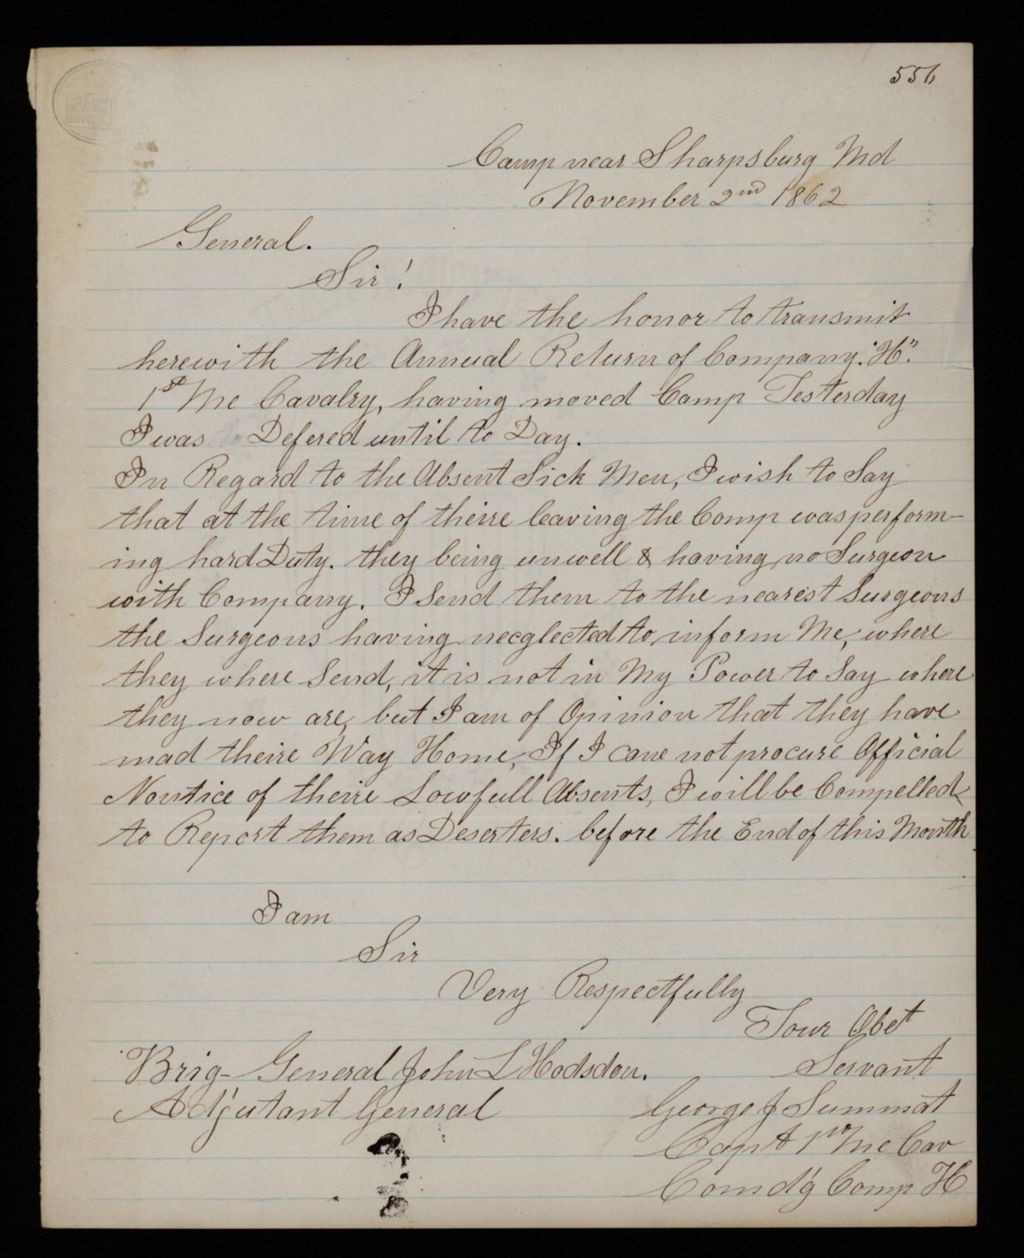 556
Camp near Sharpsburg Md
November 2nd 1862
General.
Sir!
I have the honor to transmit
herewith the Annual Return of Company. "H".
1st Me Cavalry, having moved Camp Yesterday
I was Defered until to Day.
In Regard to the Absent Sick Men, I wish to Say
that at the time of theire leaving the Comp was perform-
ing hard Duty. they being unwell & having no Surgeon
with Company. I Send them to the nearest Surgeons
the Surgeons having neceglected to inform Me, where
they where Send, it is not in My Power to Say where
they now are, but I am of Opinion that they have
mad theire Way Home, If I cane not procure Official
Nontice of theire Lowfull Absents, I will be Compelled
to Report them as Deserters. before the End of this Month
I am
Sir
Very Respectfully
Your Obet
Servant
Brig- General John L Hodsdon.
Adjutant General
George J Summat
Capt 1st Me Cav
Comd'g Comp H